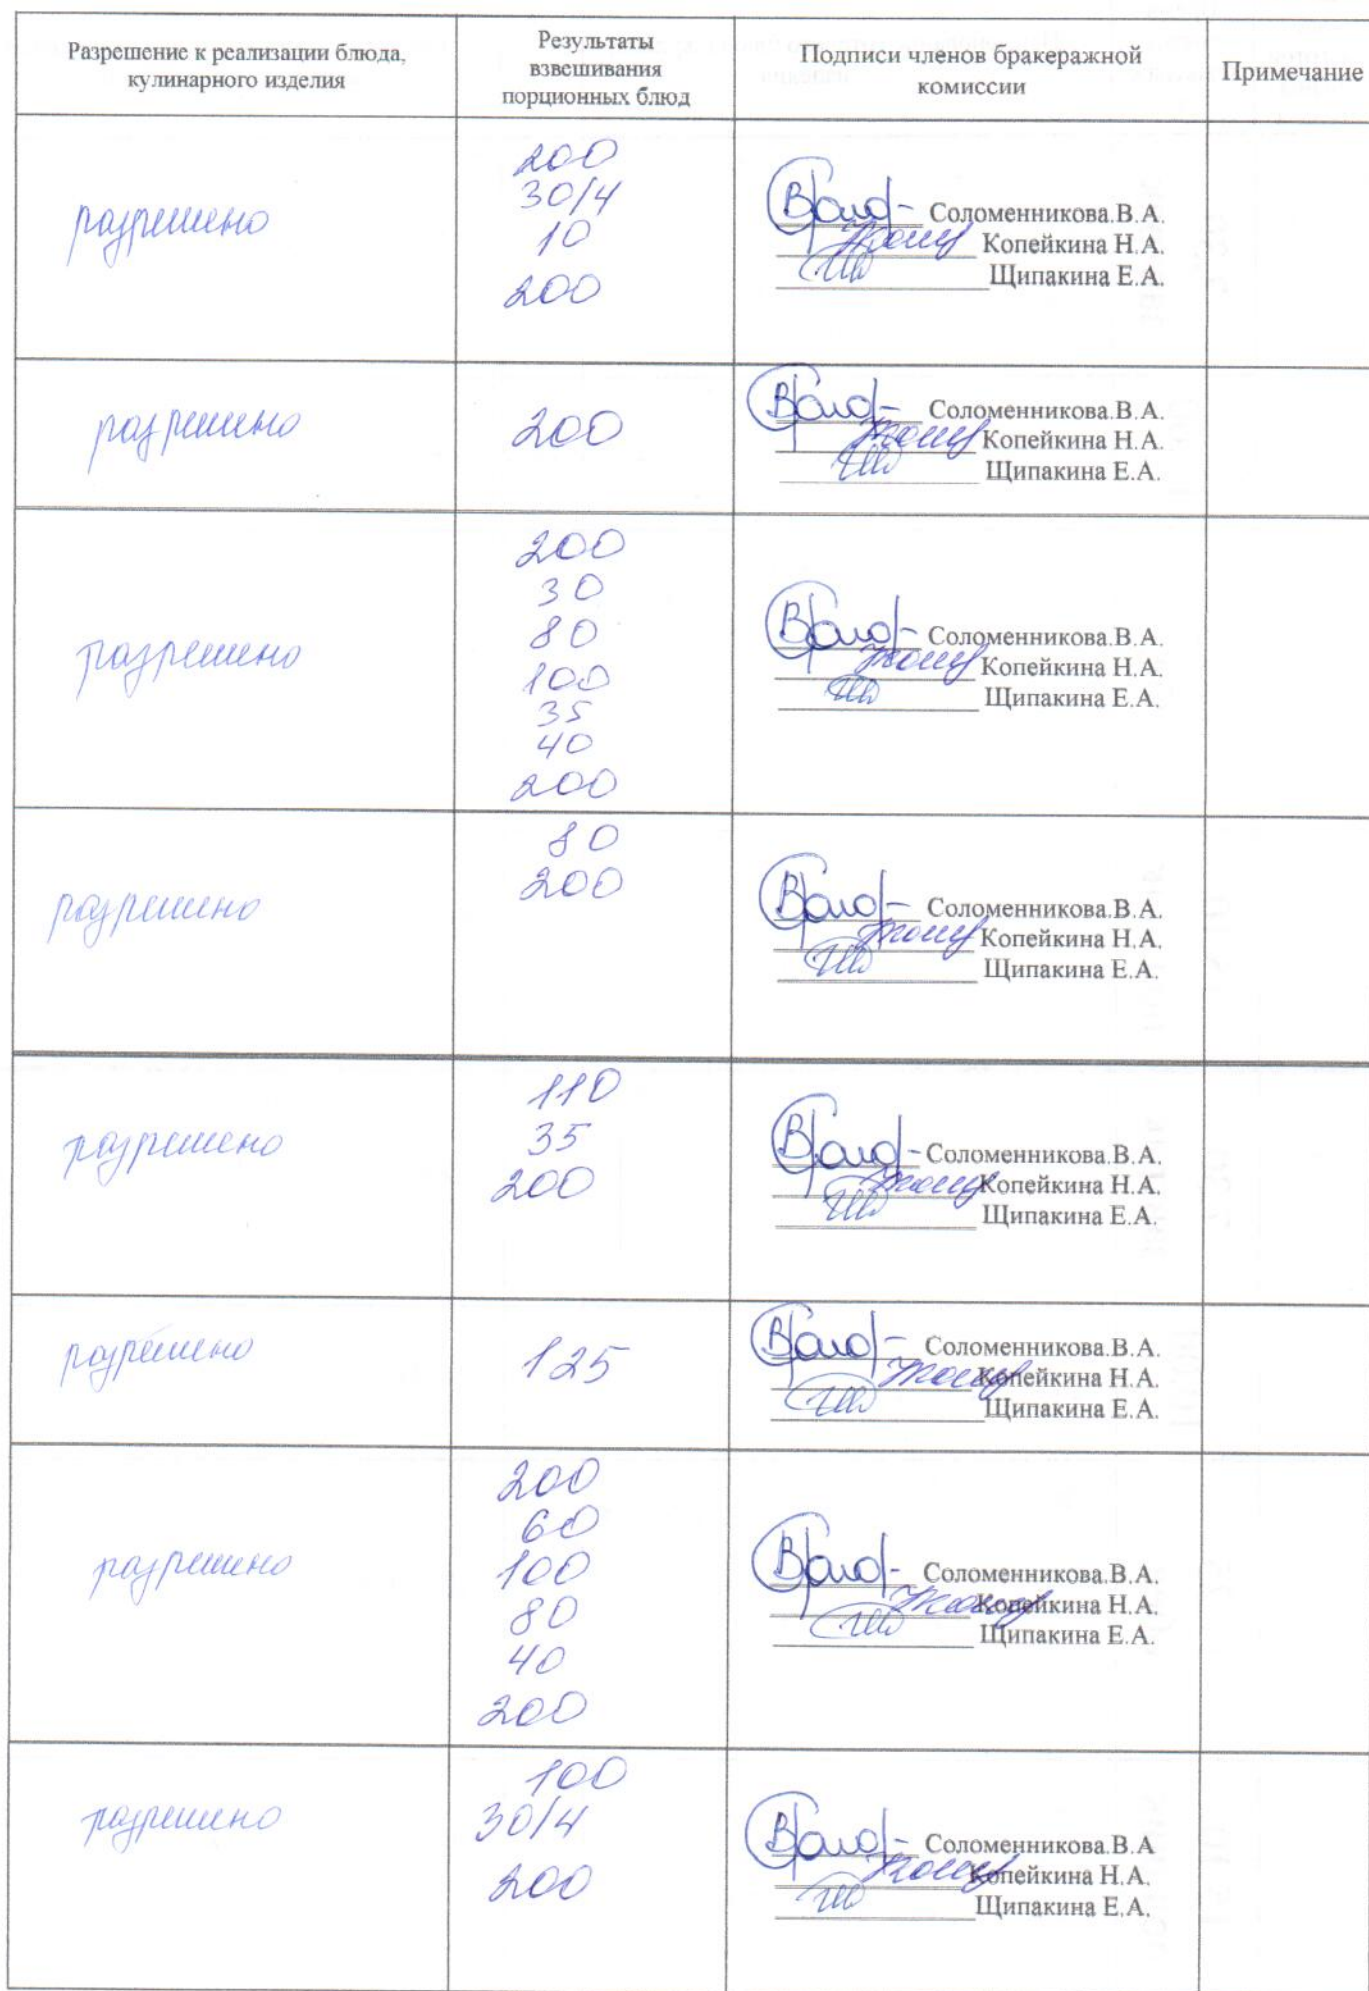 Разрешение к реализации блюда,
кулинарного изделия
Результаты
взвешивания
порционных блюд
Подписи членов бракеражной
комиссии
Примечание
разрешено
200
30/4
10
200
Соломенникова.В.А.
Копейкина Н.А.
Щипакина Е.А.
разрешено
200
Соломенникова.В.А.
Копейкина Н.А.
Щипакина Е.А.
разрешено
200
30
80
100
35
40
200
Соломенникова.В.А.
Копейкина Н.А.
Щипакина Е.А.
разрешено
80
200
Соломенникова.В.А.
Копейкина Н.А.
Щипакина Е.А.
разрешено
110
35
200
Соломенникова.В.А.
Копейкина Н.А.
Щипакина Е.А.
разрешено
125
Соломенникова.В.А.
Копейкина Н.А.
Щипакина Е.А.
разрешено
200
60
100
80
40
200
Соломенникова.В.А.
Копейкина Н.А.
Щипакина Е.А.
разрешено
100
30/4
200
Соломенникова.В.А
Копейкина Н.А.
Щипакина Е.А.